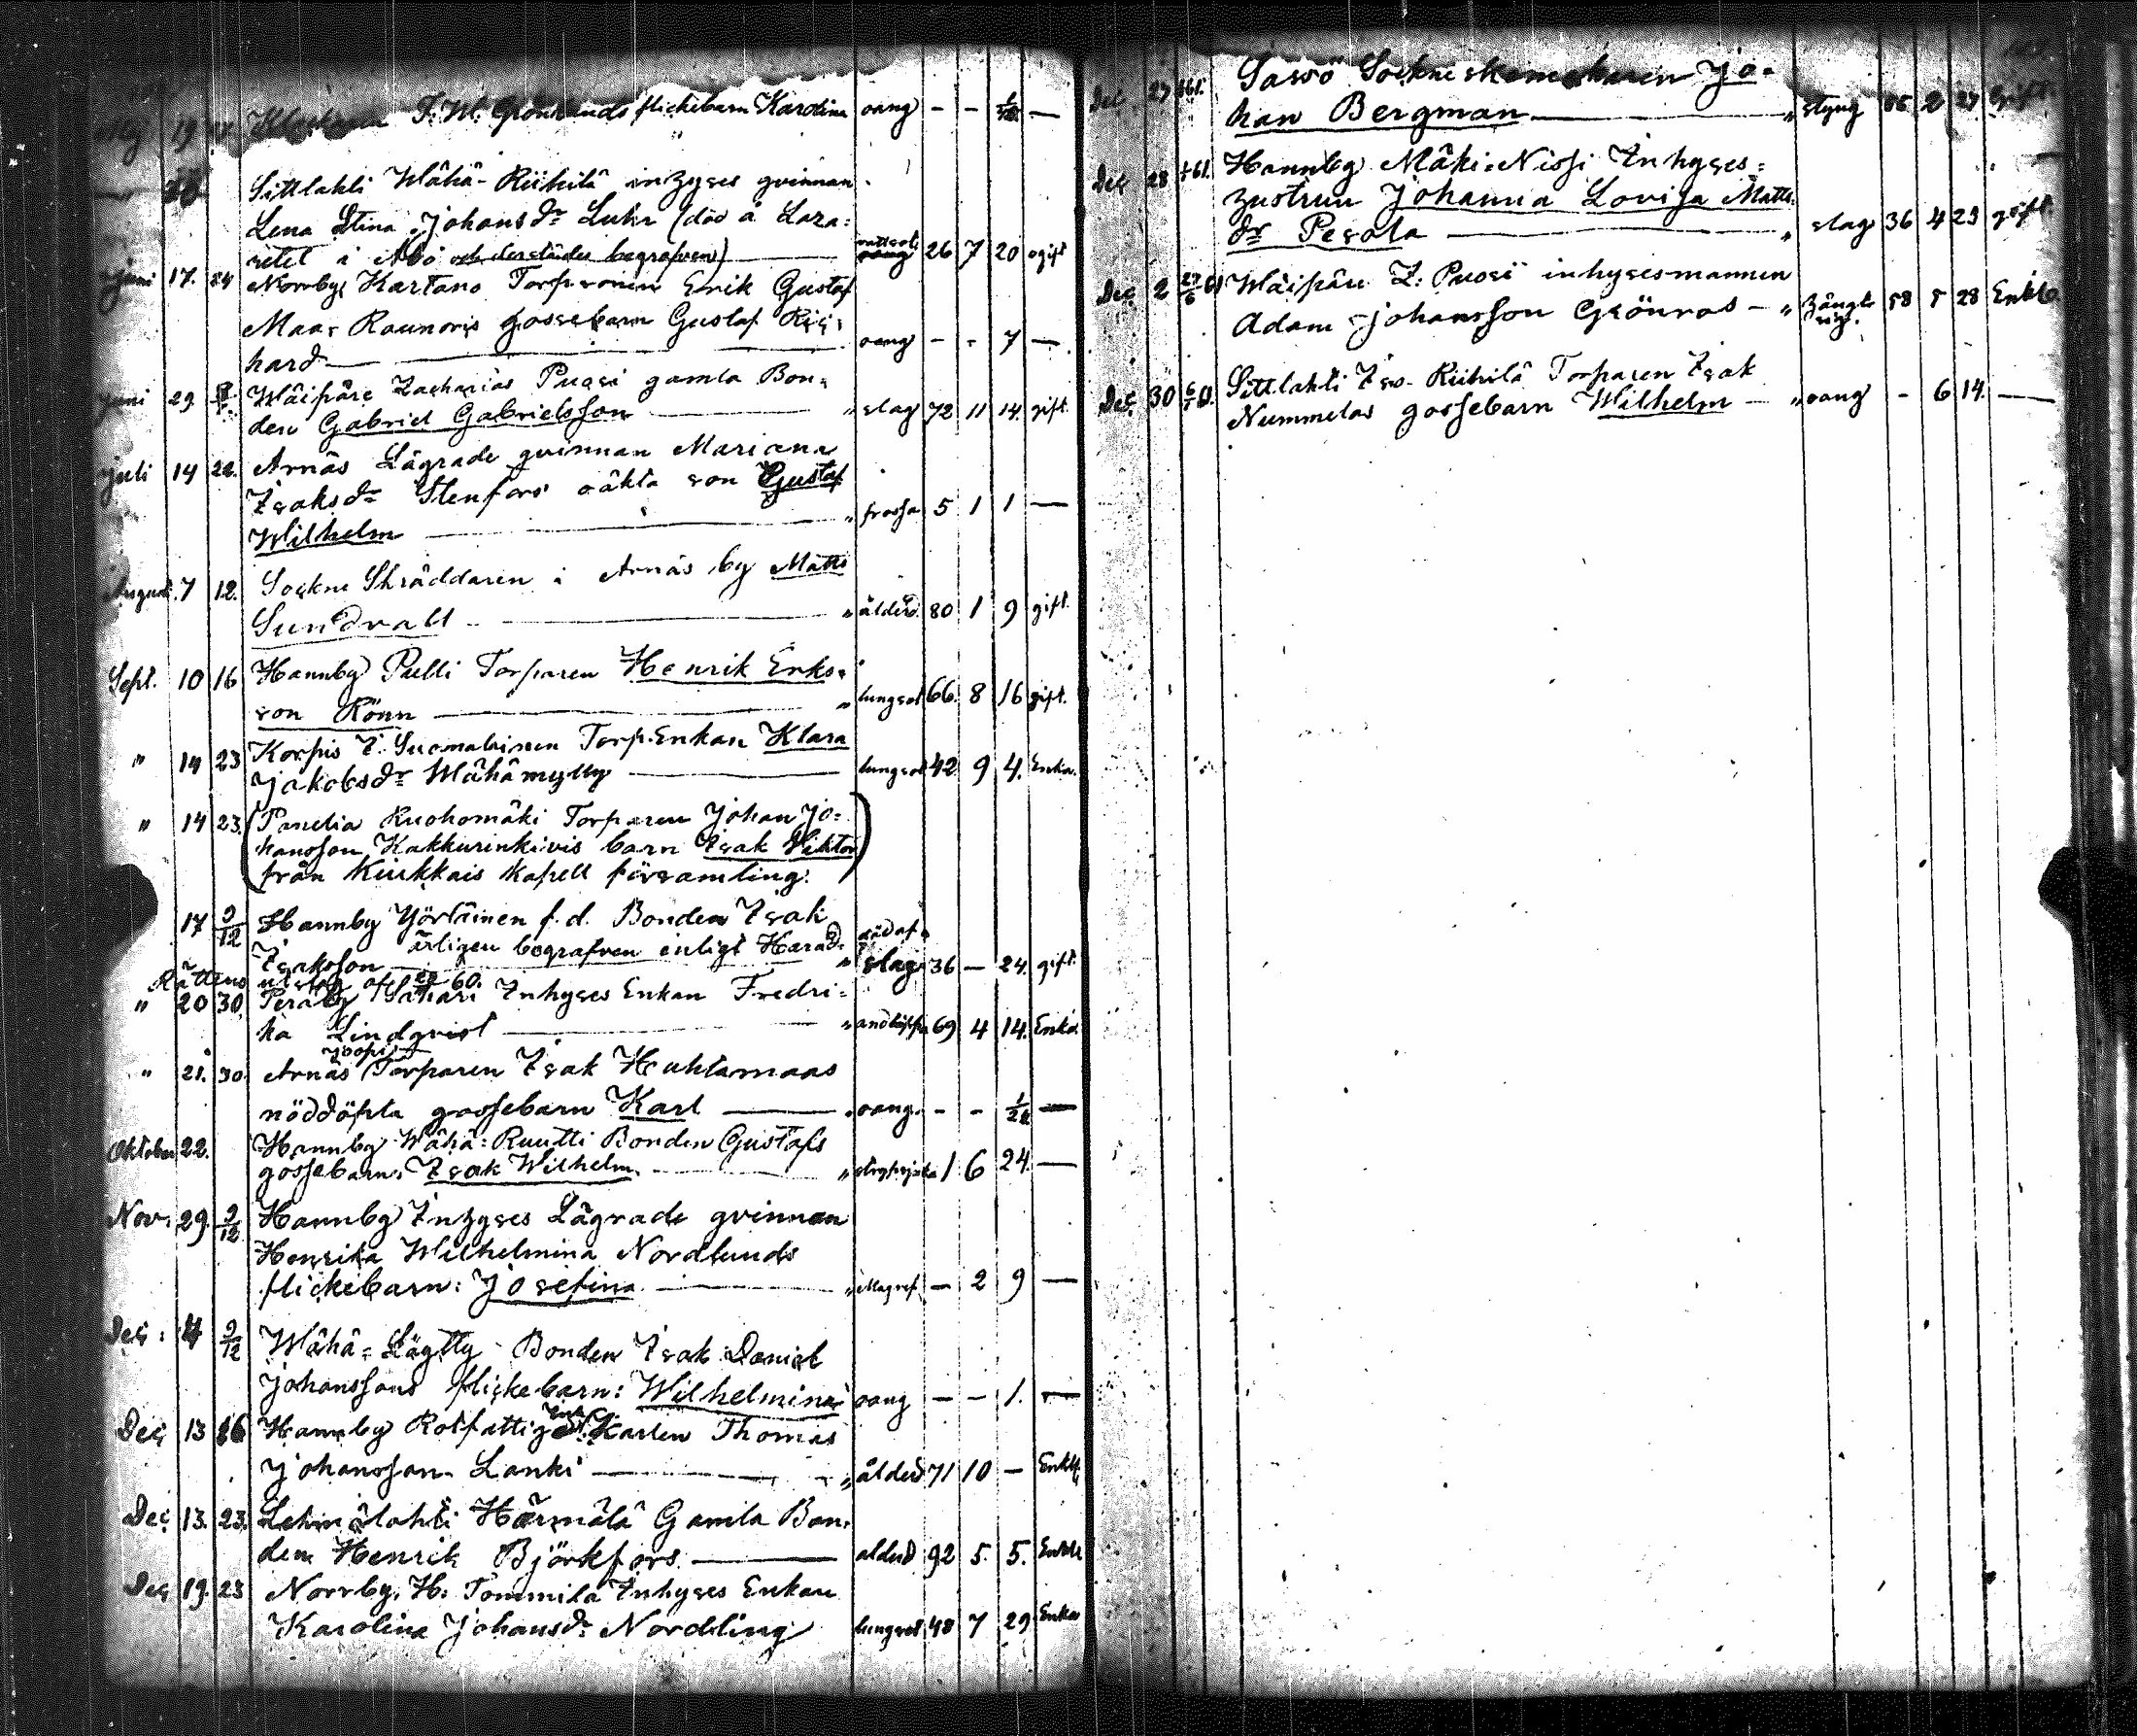 Maj 19 F. W. Grönlunds flickebarn Karolina oang — — —
28 Sittlahti Wähä-Riihilä inhyses qvinnan
Lena Stina Johansdr Luhr (död å Laza-
retet i Åbo och derstädes begrafven) — 26 7 20 ogift
Juni 17. 24 Norrby Kartano Torp
Erik Gustaf
Maas Raunoris gossebarn Gustaf Ri-
hard — oang — - 7 —
Juni 29 Wäipäre Zacharias Puosi gamla Bon-
den Gabriel Gabrielsson — " slag 72 11 14. gift
Juli 14 22. Arnäs Lägrade qvinnan Mariana
Isaksdr Stenfors oäkta son Gustaf
Wilhelm — " frossa 5 1 1 —
August. 7 12. Sockne Skräddaren i Arnäs by Matts
Sundvall — " ålderd. 80 1 9 gift.
Sept. 10 16 Hannby Pelli Torparen Henrik Eriks-
son Rönn — " lungsot 66. 8 16 gift.
" 14 23 Korpis I. Suomalainen Torp.Enkan Klara
Jakobsdr Wähämylly — lungsot 42 9 4. Enka.
" 14 23. (Panelia Ruohomäki Torparen Johan Jo-
hansson Kakkurinkivis barn Isak Viktor)
från Kiukkais Kapell församling.
17 9/12 Hannby Yörtäinen f.d. Bonden Isak
Isaksson — ärligen begrafven enligt Härads- död af
slag 36 — 24. gift.
Rättens utslag af 60.
" 20 30. Peräby Sahari Inhyses Enkan Fredri-
ka Lindqvist — " andtäppa 69 4 14. Enka.
Joopi
" 21. 30. Arnäs Torparen Isak Huhtamaas
nöddöpta gossebarn Karl — " oang. - - 1/24 —
Oktober 22. Hannby Wähä-Ruutti Bonden Gustafs
gossebarn: Isak Wilhelm. — " strypsjuka 1 6 24. —
Nov. 29. 9/12 Hannby Inhyses Lägrade qvinnan
Henrika Wilhelmina Nordlunds
flickebarn: Josefina — " Magref — 2 9 —
Dec: 4 9/12 Wähä-Säytty Bonden Isak Daniel
Johanssons flickebarn: Wilhelmina oang — — 1. —
Dec. 13 16 Hannby Rotfattig Karlen Thomas
Johansson Lanki — " ålderd 71 10 — Enkl.
Dec. 13. 23. Lehmälahti Härmälä Gamla Bon-
den Henrik Björkfors. — alderd 92 5. 5. Enkl.
Dec 19. 23 Norrby H. Tommila Inhyses Enkan
Karolina Johansdr Nordling lungsot 48 7 29 Enka
Dec. 27 Sarvö Sockneskomakaren Jo-
han Bergman — " styng 2 27 Gift.
Dec. 28 Hannby Mäki-Nissi Inhyses-
hustrun Johanna Lovisa Matts-
dr Pesola — " slag 36 4 23 gift.
Dec. 2 27/6 Wäipäre Z. Puosi inhysesmannen
Adam Johansson Grönroos — " hängde sig. 58 5 28 Enkl.
Dec. 30 6/1 Sittlahti Iso-Riihilä Torparen Isak
Nummelas gossebarn Wilhelm — " oang - 6 14. —